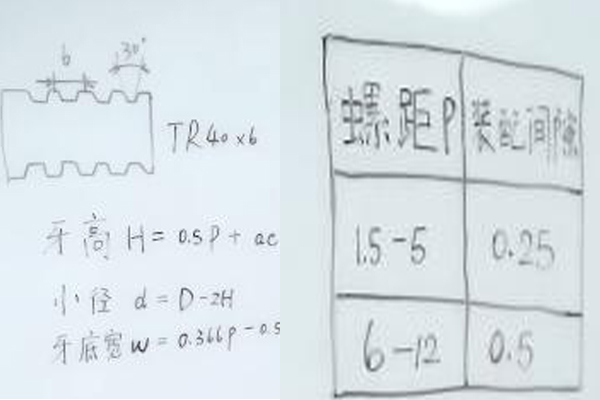 6
30°
TR40×6
牙高 H = 0.5P + ac
小径 d = D-2H
牙底宽 w = 0.366P - 0.5
螺距P 装配间隙
1.5-5 0.25
6-12 0.5